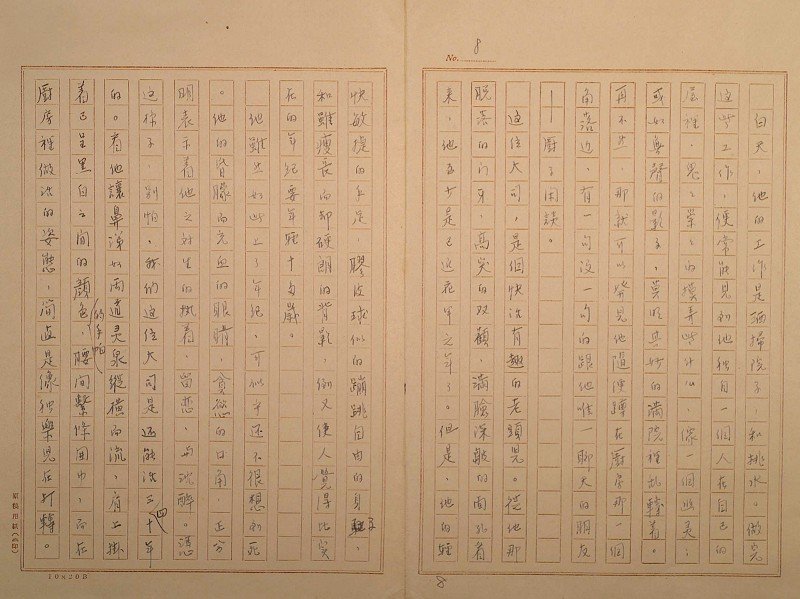 No. 8
白天，他的工作是洒掃院子，和挑水。做完
這些工作，便常能見到他独自一個人在自己的
屋裡，忽忽的摸弄些什么，像一個幽灵；
或如無聲的影子，莫明其妙的滿院裡乱轉着。
再不然，那就可以發見他隨便蹲在厨房那一個
角落边，有一句沒一句的跟他唯一聊天的朋友
——厨子閑談。
這位大司，是個快活有趣的老頭兒。從他那
脫落的门牙，高突的双顴，滿臉深皺的面孔看
來，他至少是已近花甲之年了。但是，他的輕
快敏捷的手足，膠皮球似的蹦跳自由的身軀，
和雖瘦長而却硬朗的背影，倒又使人覺得比实
在的年紀要年輕十多歲。
他雖然如此上了年紀，可似乎还不很想到死
。他的昏朦而充血的眼睛，貪慾的口角，正分
明表示着他之对生的執着，留恋，与沈醉。憑
这樣子，別怕，我们这位大司是还能活三四十年
的。看他讓鼻涕如兩道灵泉縱橫而流，肩上掛
着已呈黑白之间的顔色的手帕，腰间繫條围巾，而在
厨房裡做活的姿態，简直是像独樂兒在打轉。
10×20B
8